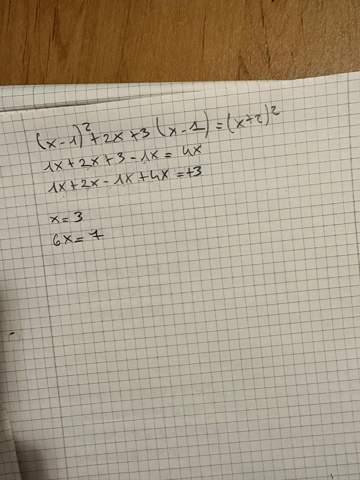 (x-1)² + 2x + 3 (x-1) = (x+2)²
1x + 2x + 3 - 1x = 4x
1x + 2x - 1x + 4x = +3
x = 3
6x = 7